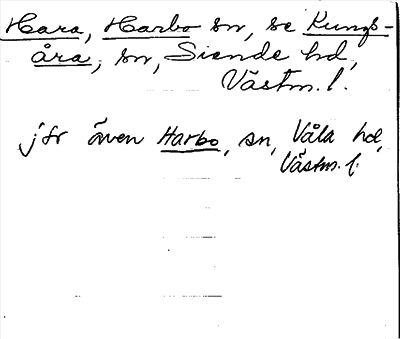 Hara, Harbo sn, se Kungs-
åra, sn, Siende hd,
Västm. l.
jfr även Harbo, sn, Våla hd,
Västm. l.